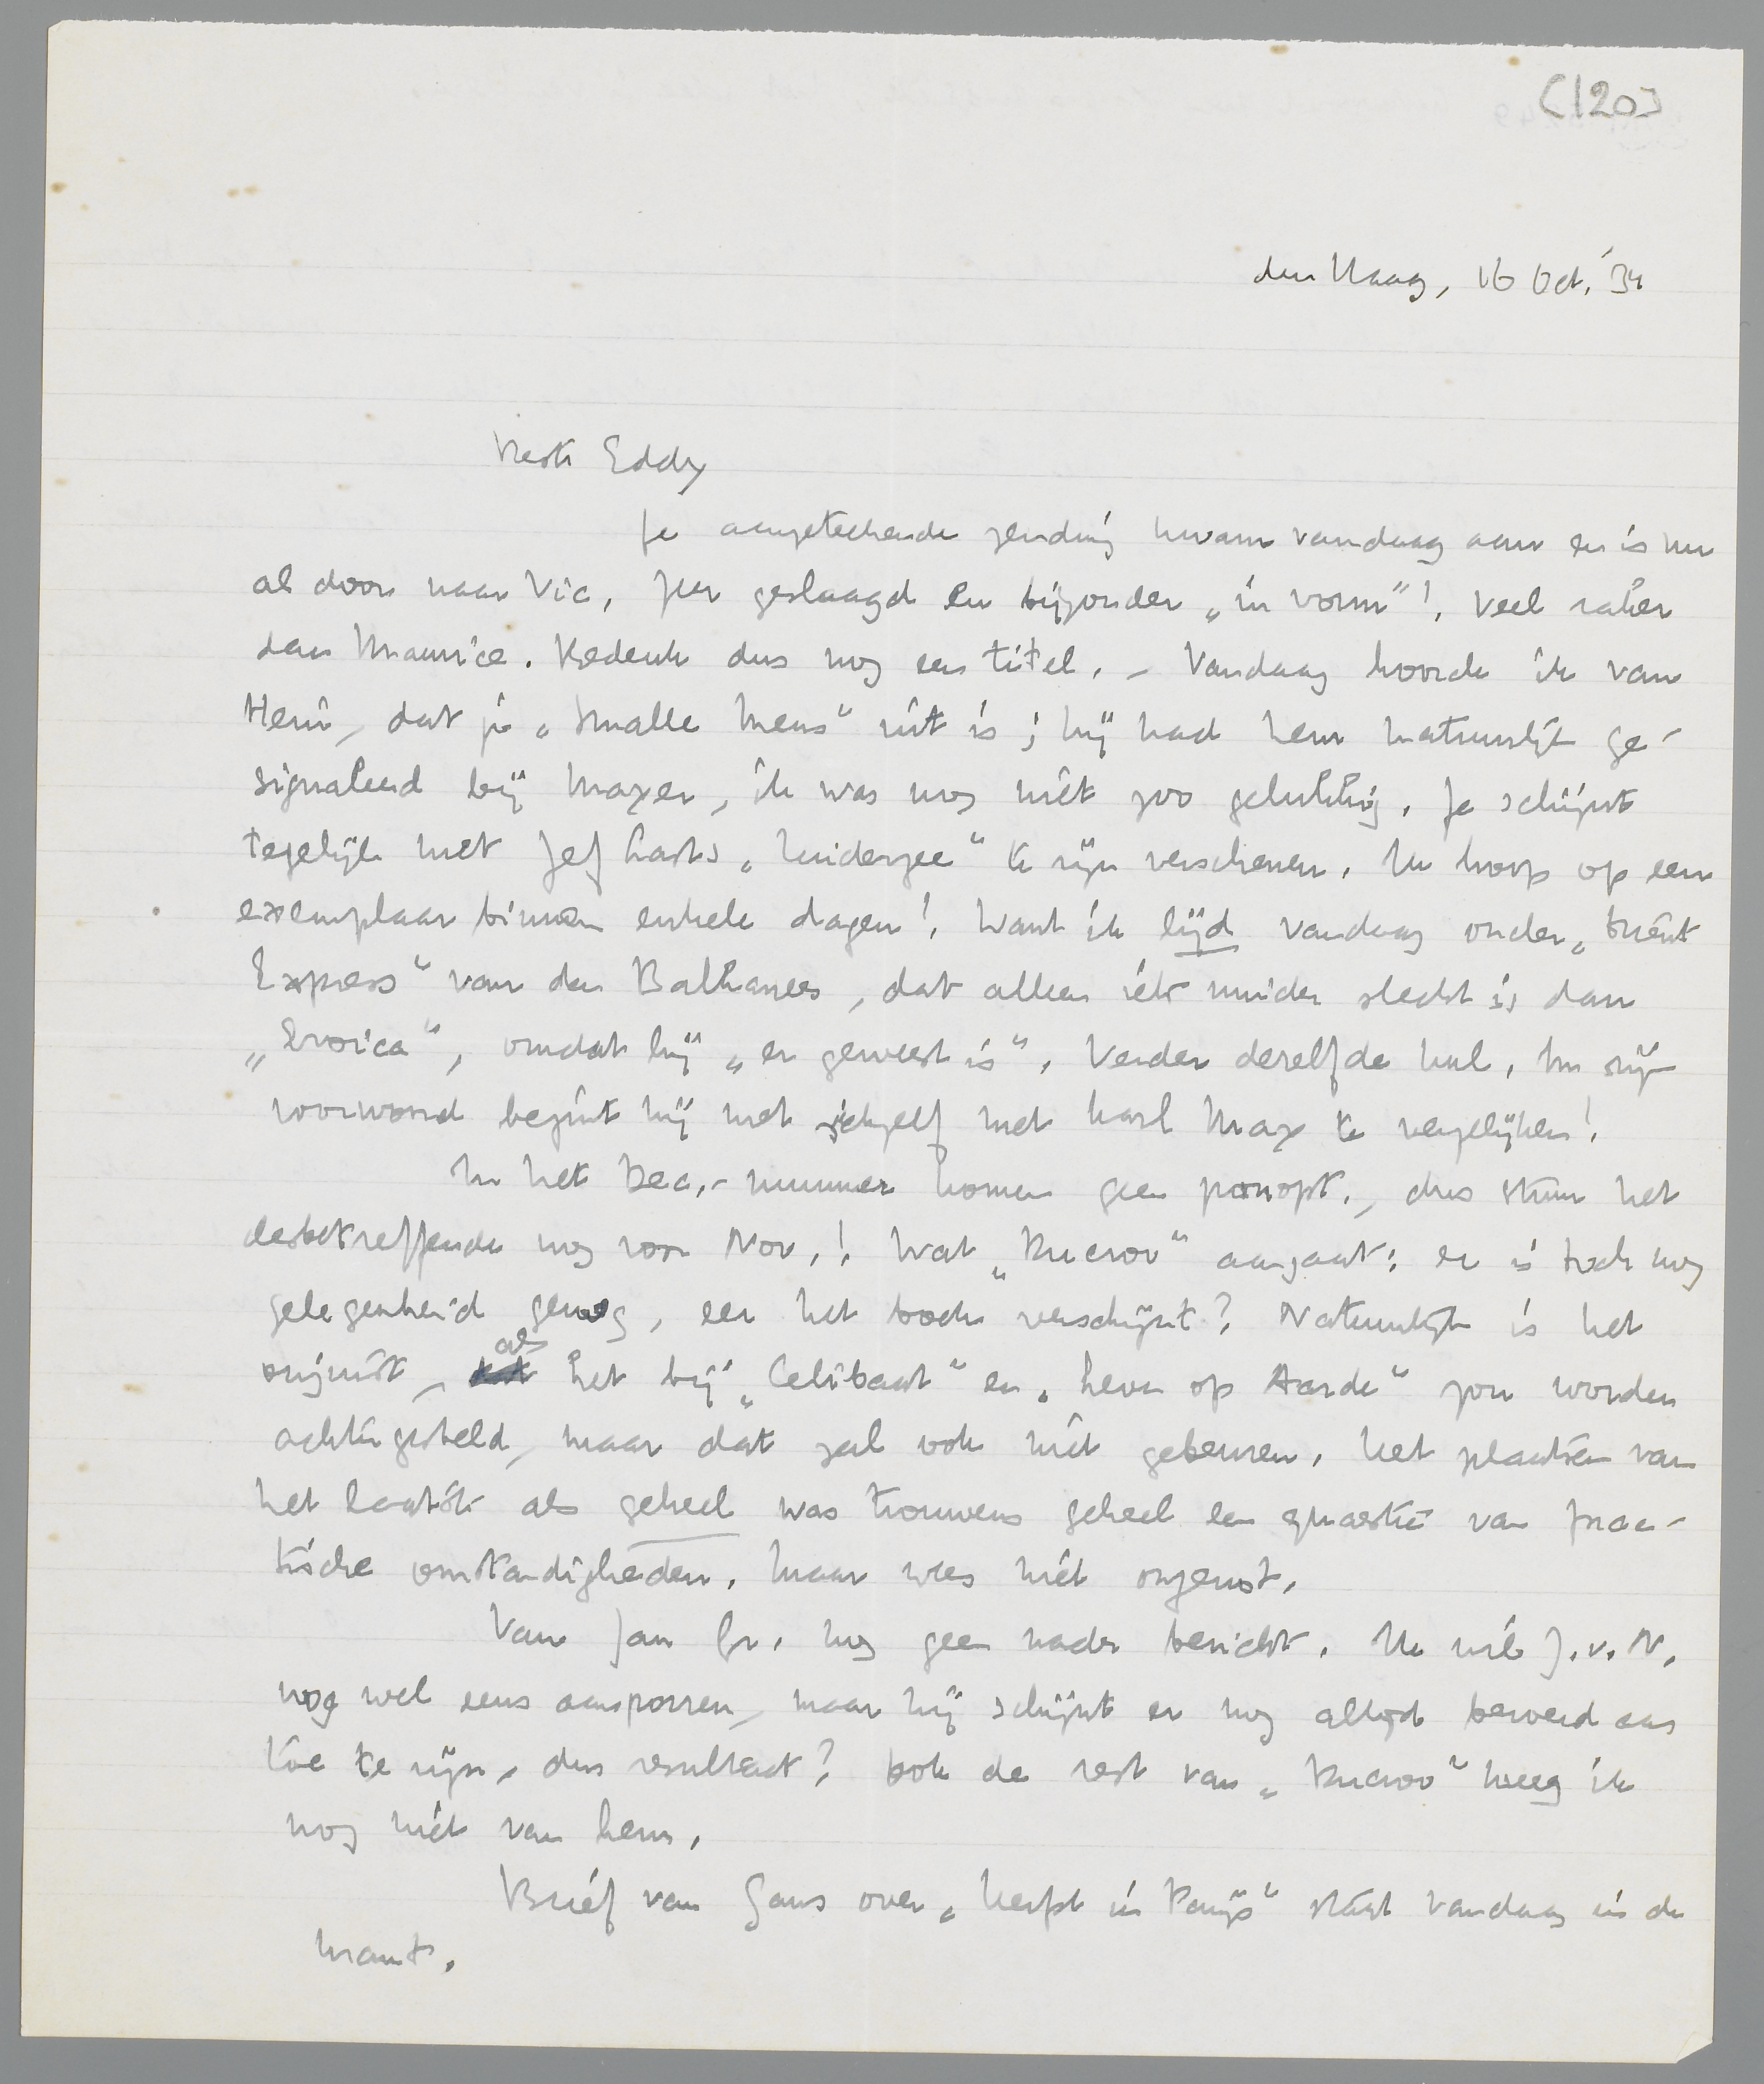 [120]
den Haag, 16 Oct. '34
Beste Eddy
Je aangeteekende zending kwam vandaag aan en is nu
al door naar Vic. Zeer geslaagd en bijzonder „in vorm”! Veel raker
dan Maurice. Bedenk dus nog een titel. – Vandaag hoorde ik van
Henri, dat je „Smalle Mens” uit is; hij had hem natuurlijk ge-
signaleerd bij Mayer, ik was nog niet zoo gelukkig. Je schijnt
tegelijk met Jef Lasts „Zuiderzee” te zijn verschenen. Ik hoop op een
exemplaar binnen enkele dagen! Want ik lijd vandaag onder „Oriënt
Express” van den Balkanees, dat alleen iets minder slecht is dan
„Eroica”, omdat hij „er geweest is”. Verder dezelfde kul. In zijn
voorwoord begint hij met zichzelf met Karl Marx te vergelijken!
In het Dec.-nummer komen geen panopt., dus stuur het
desbetreffende nog voor Nov.! Wat „Ducroo” aangaat: er is toch nog
gelegenheid genoeg, eer het boek verschijnt? Natuurlijk is het
onjuist, als het bij „Celibaat” en „Leven op Aarde” zou worden
achtergesteld, maar dat zal ook niet gebeuren. Het plaatsen van
het laatste als geheel was trouwens geheel een quaestie van prac-
tische omstandigheden. Maar wees niet ongerust.
Van Jan Gr. nog geen nader bericht. Ik wil J.v.N.
nog wel eens aanporren, maar hij schijnt er nog altijd beroerd aan
toe te zijn, dus resultaat? Ook de rest van „Ducroo” kreeg ik
nog niet van hem.
Brief van Gans over „Herfst in Parijs” staat vandaag in de
krant.